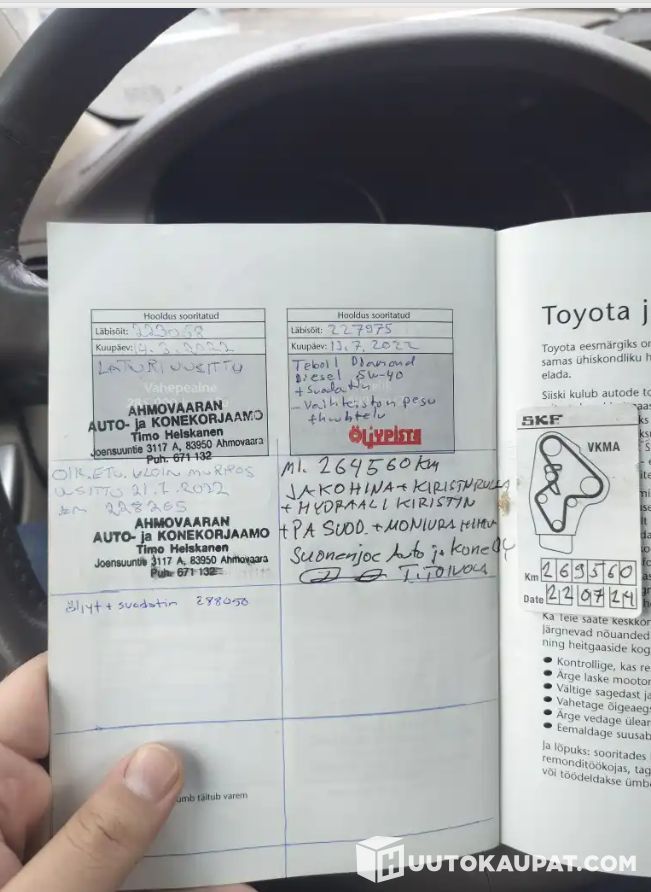 Hooldus sooritatud
Läbisõit: 223058
Kuupäev: 14.3.2022
LATURI UUSITTU
Vahepealne
AHMOVAARAN
AUTO- ja KONEKORJAAMO
Timo Heiskanen
Joensuuntie 3117 A, 83950 Ahmovaara
Puh. 671 132
Hooldus sooritatud
Läbisõit: 227975
Kuupäev: 13.7.2022
Teboil Diamond
Diesel 5W-40
+ suodatin
- Vaihteiston pesu
ÖLJYPISTE
OIK. ETU.
UUSITTU 21.7.2022
km 228265
AHMOVAARAN
AUTO- ja KONEKORJAAMO
Timo Heiskanen
Joensuuntie 3117 A, 83950 Ahmovaara
Puh. 671 132
Ml. 264560 km
JAKOHINA + KIRISTINRULLA
+ HYDRAALI KIRISTIN
+ PA SUOD. + MONIURAHIHNA
Suonenjoe Auto ja Kone OY
öljyt + suodatin 288050
umb täitub varem
Toyota j
Toyota eesmärgiks on
samas ühiskondliku h
elada.
Siiski kulub autode to
SKF
VKMA
Km 269560
Date 22 07 24
Ka Teie saate keskkon
järgnevad nõuanded
ning heitgaaside kog
● Kontrollige, kas re
● Ärge laske mootor
● Vältige sagedast ja
● Vahetage õigeaegs
● Ärge vedage ülear
● Eemaldage suusab
Ja lõpuks: sooritades
remonditöökojas, tag
või töödeldakse ümbe
HUUTOKAUPAT.COM